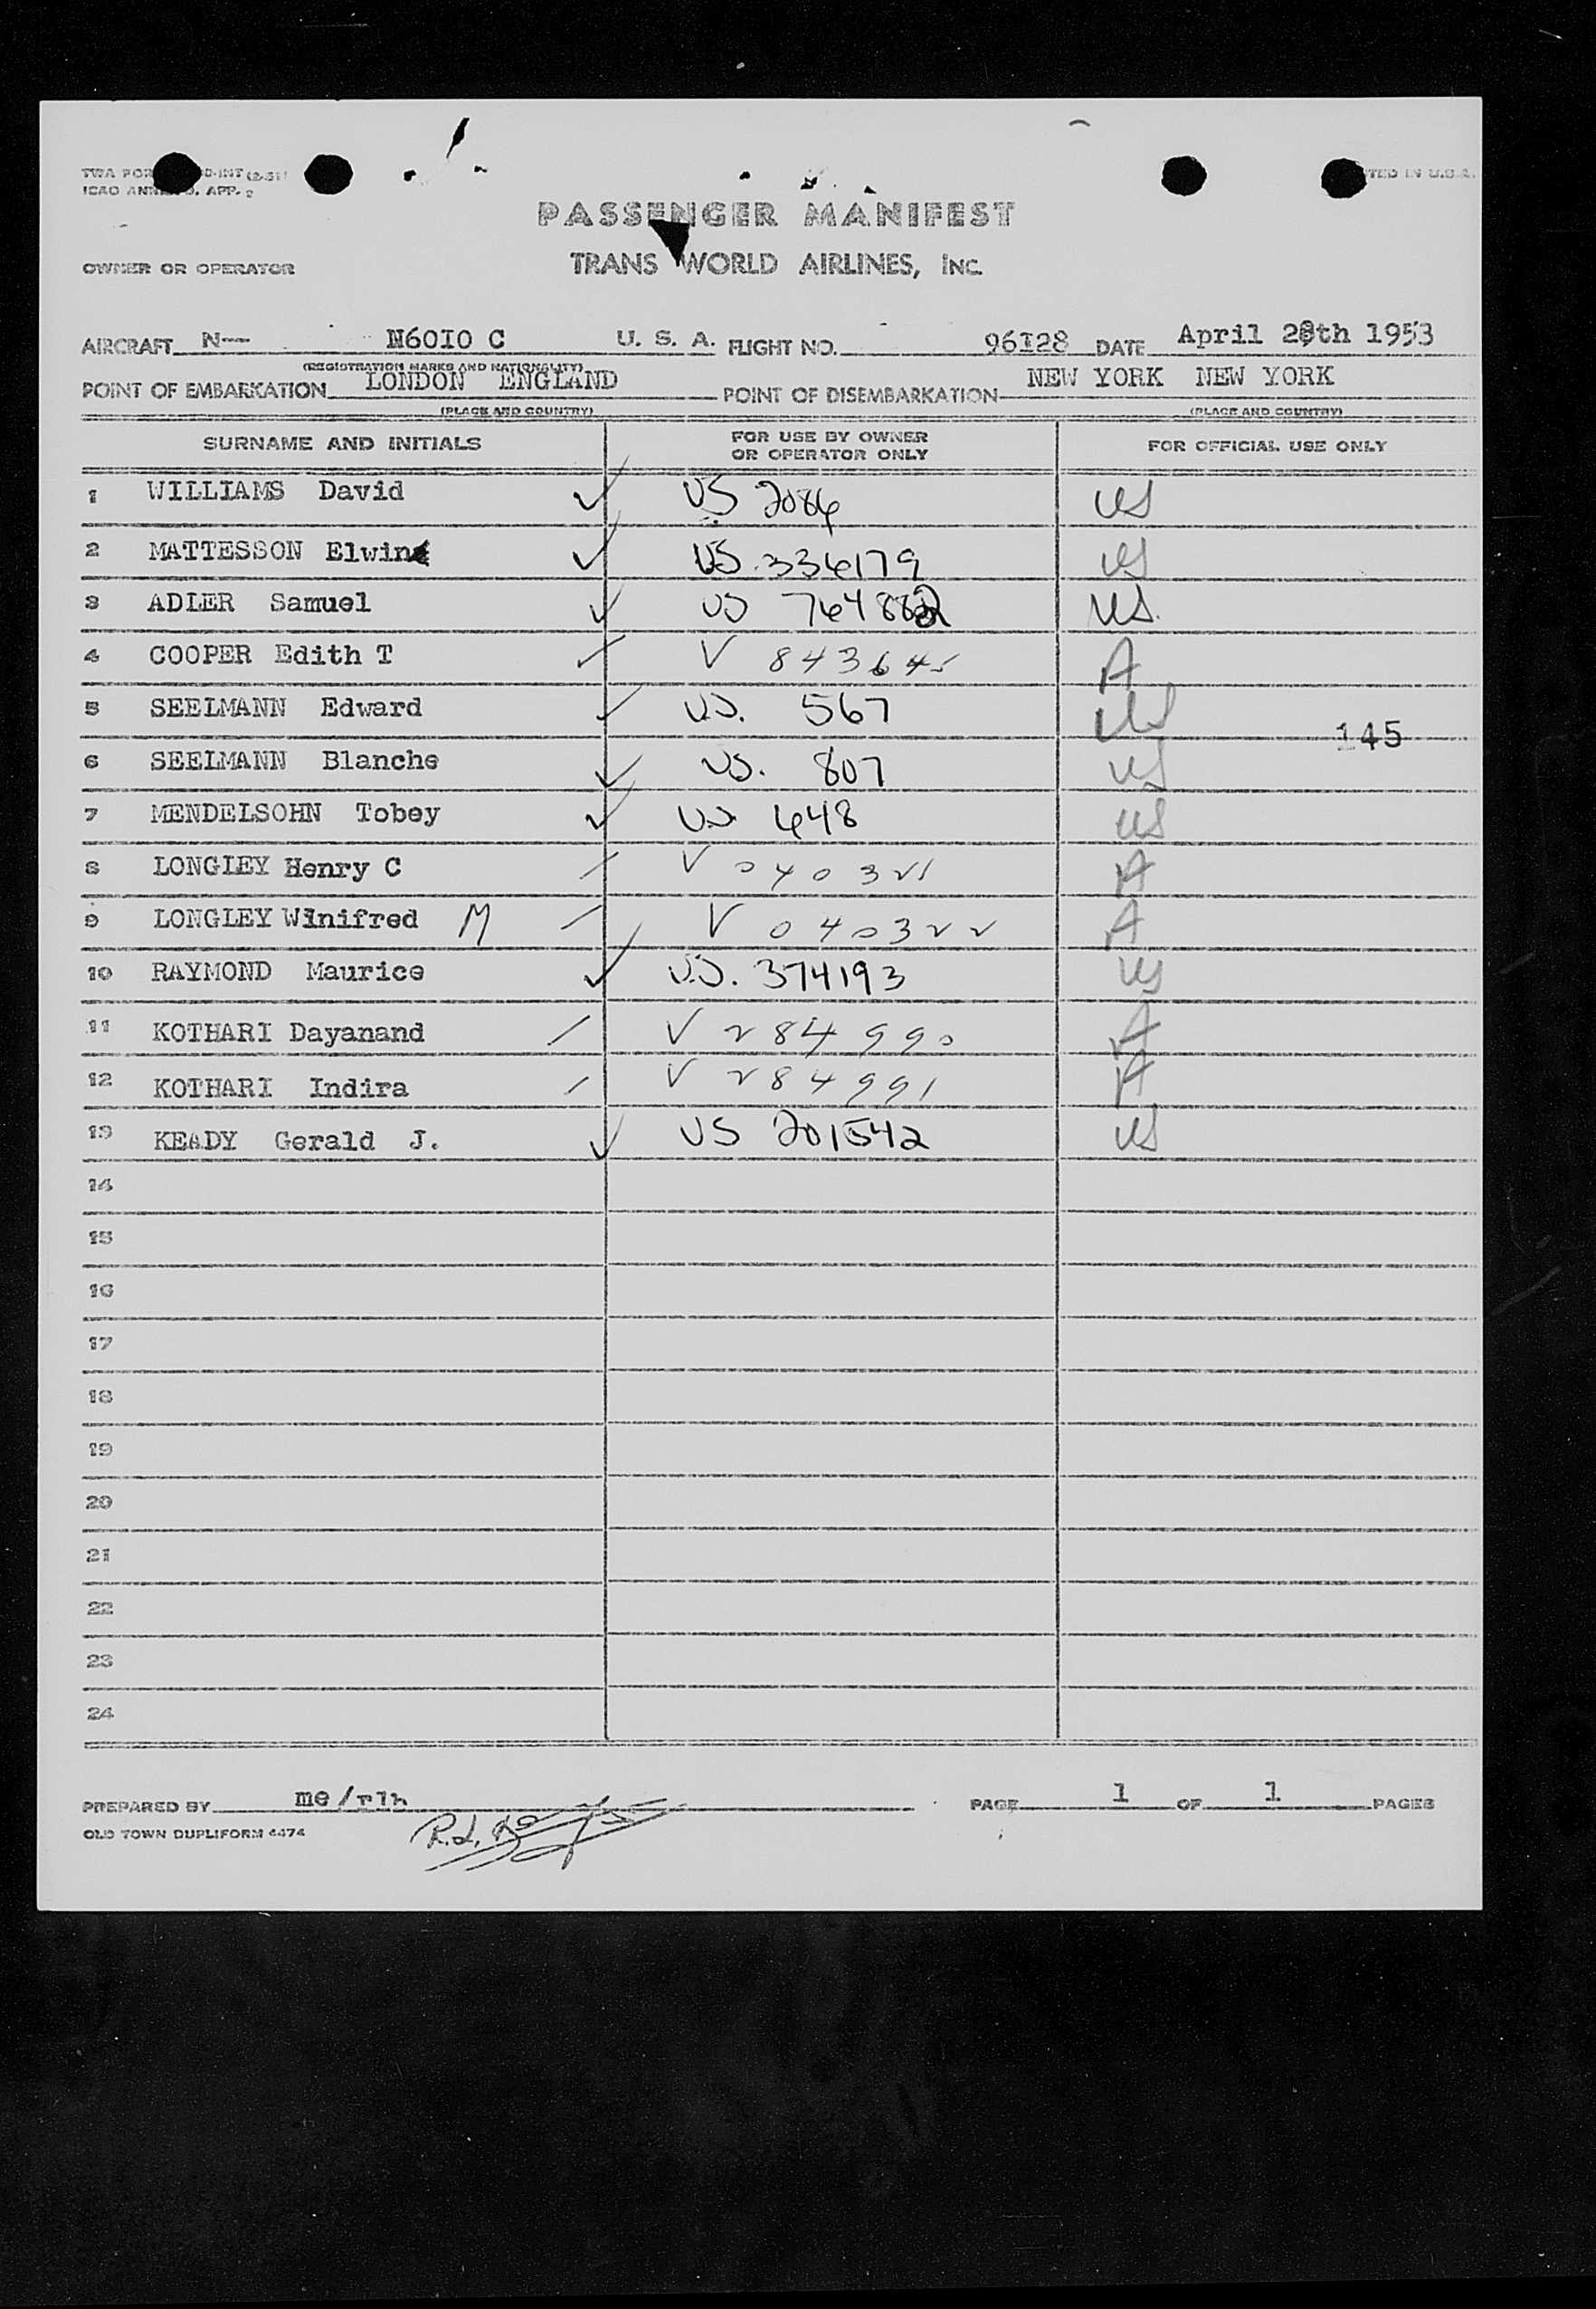 TWA FOR D-INT (2-51)
TED IN U.S.A.
ICAO ANN 9, APP. 2
PASSENGER MANIFEST
OWNER OR OPERATOR TRANS WORLD AIRLINES, INC.
AIRCRAFT N-- N6010 C U. S. A. FLIGHT NO. 96128 DATE April 28th 1953
(REGISTRATION MARKS AND NATIONALITY)
POINT OF EMBARKATION LONDON ENGLAND POINT OF DISEMBARKATION NEW YORK NEW YORK
(PLACE AND COUNTRY) (PLACE AND COUNTRY)
SURNAME AND INITIALS FOR USE BY OWNER OR OPERATOR ONLY FOR OFFICIAL USE ONLY
1 WILLIAMS David ✓ US 2086 US
2 MATTESSON Elwin ✓ US 336179 US
3 ADLER Samuel ✓ US 764882 US.
4 COOPER Edith T ✓ V 843645 A
5 SEELMANN Edward ✓ U.S. 567 US
145
6 SEELMANN Blanche ✓ US. 807 US
7 MENDELSOHN Tobey ✓ US 648 US
8 LONGLEY Henry C / V 040321 A
9 LONGLEY Winifred M / V 040322 A
10 RAYMOND Maurice ✓ U.S. 374193 US
11 KOTHARI Dayanand / V 284990 A
12 KOTHARI Indira / V 284991 A
13 KEADY Gerald J. ✓ US 201542 US
14
15
16
17
18
19
20
21
22
23
24
PREPARED BY me/rlh PAGE 1 OF 1 PAGES
OLD TOWN DUPLIFORM 4474